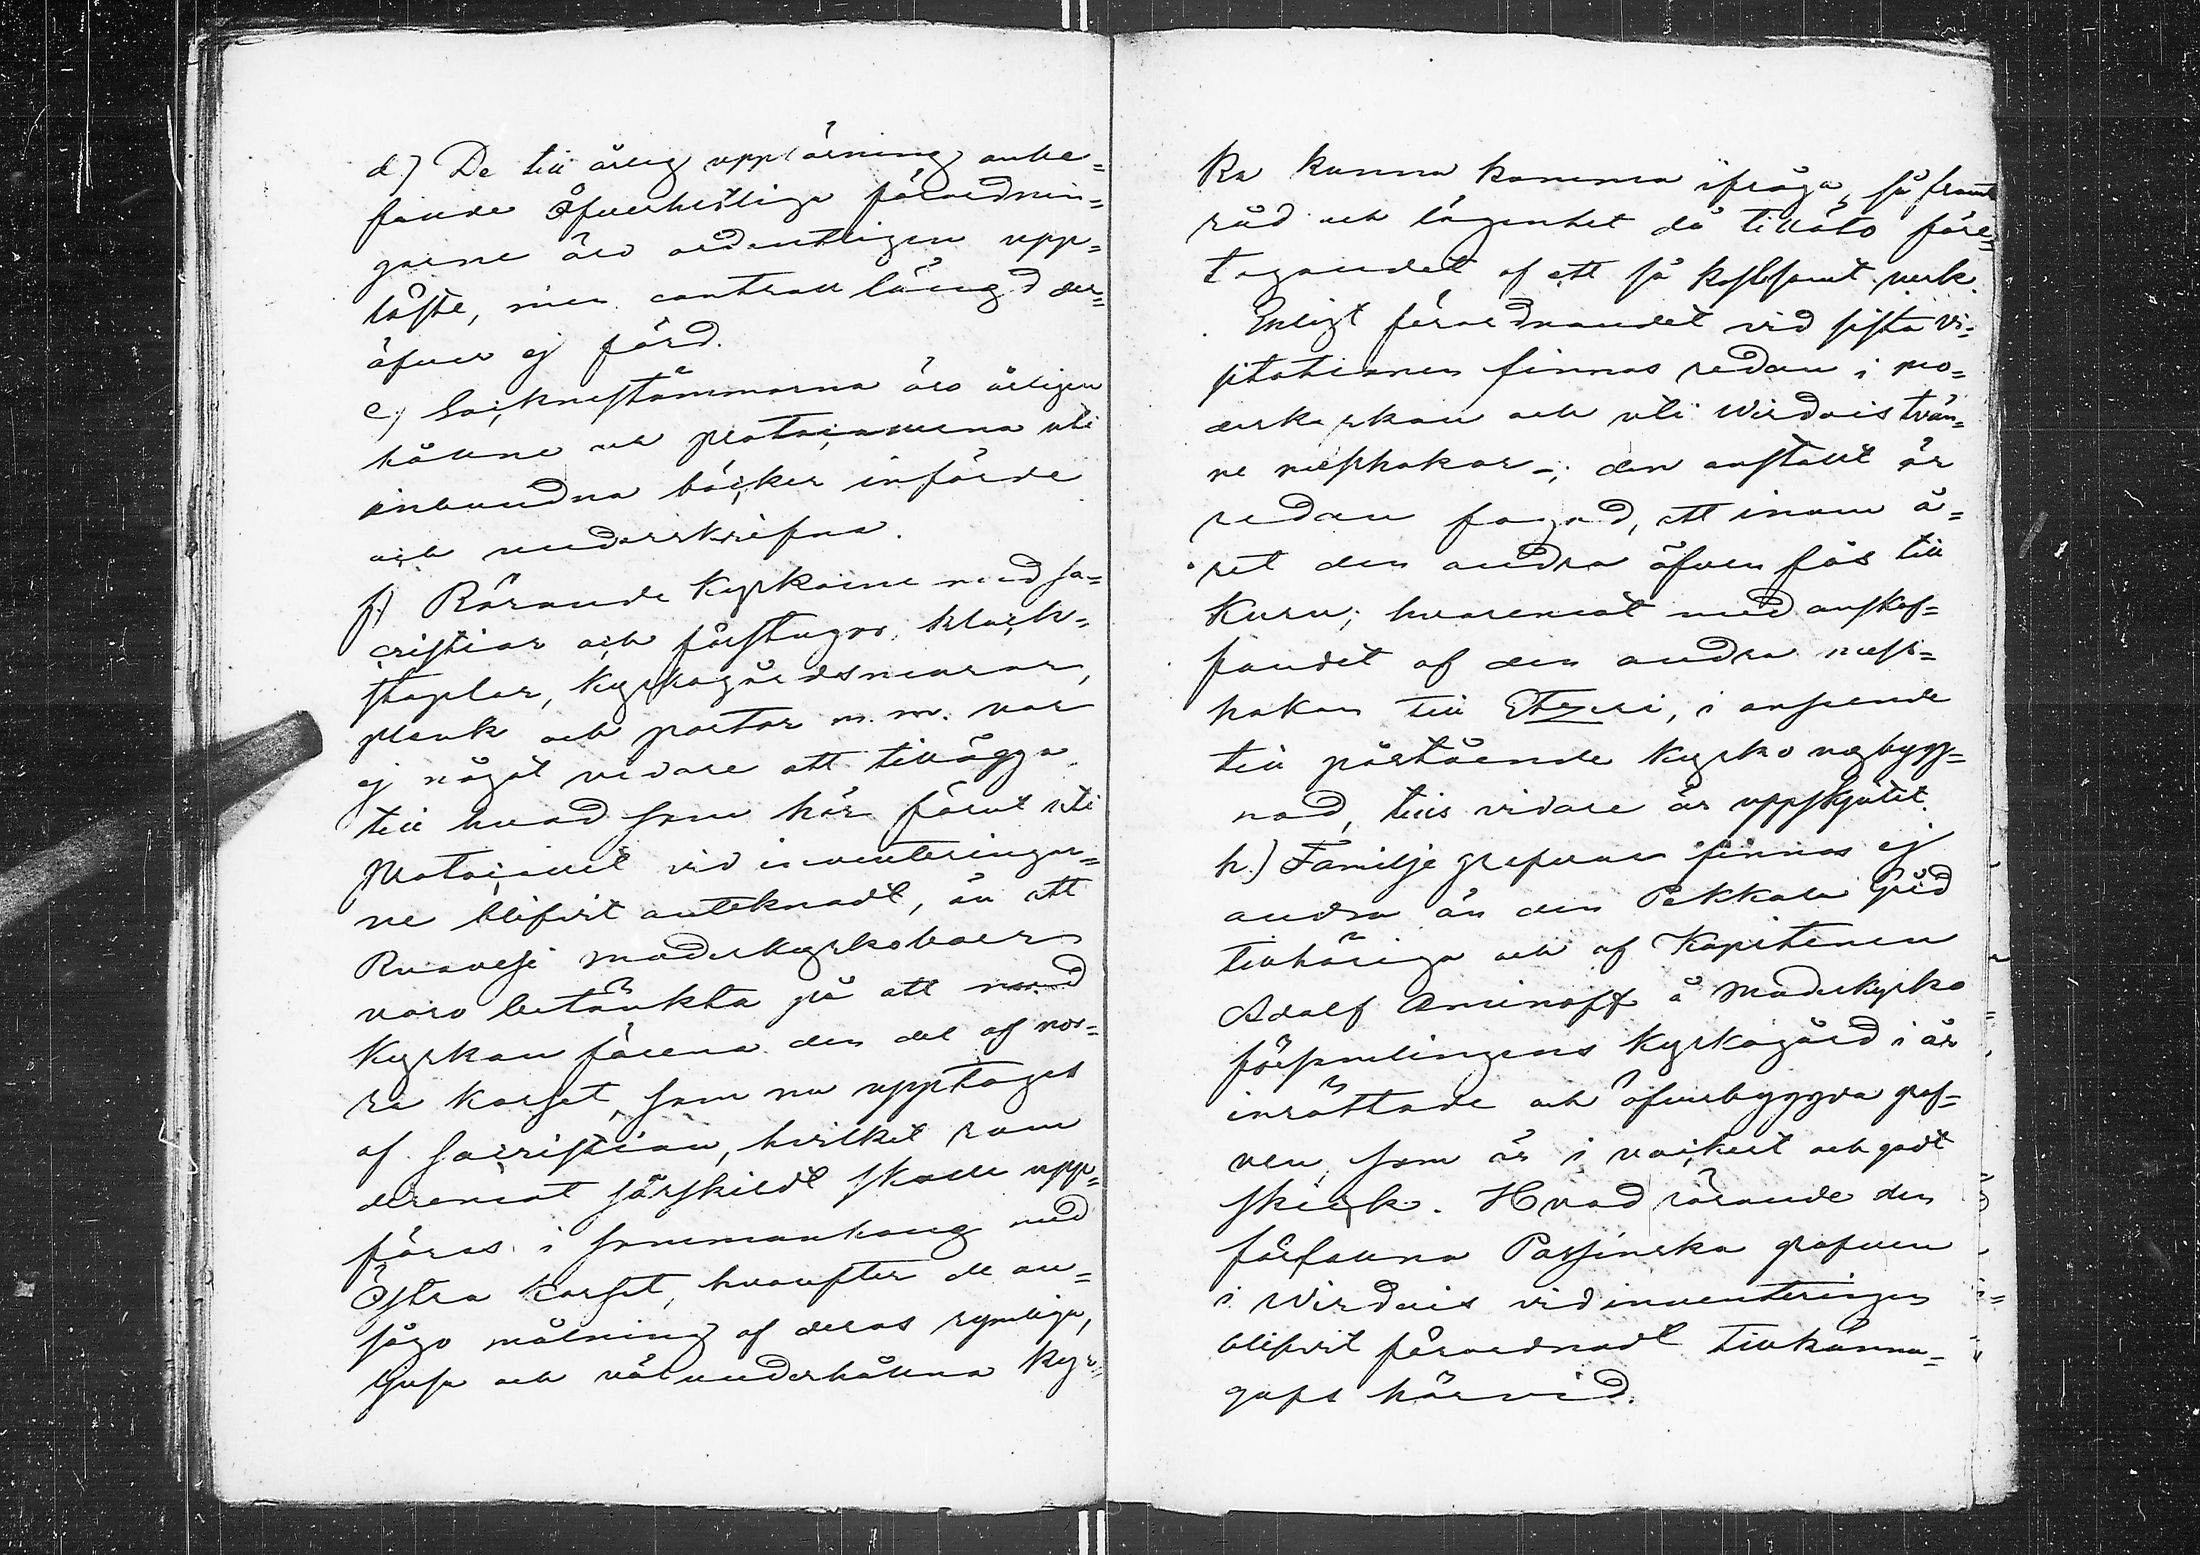 d) De till årlig uppläsning anbe=
falde Öfverhetliga förordnin=
garne äro ordentligen upp=
läste, men controll längd der=
öfver ej förd.
e) Socknestämmorna äro årligen
hållne och protocollerna uti
inbundna böcker införde
och underskrifna.
f) Rörande Kyrkorne med sa=
cristior och förstugor, klock=
staplar, kyrkogårdsmurar,
plank och portar m. m. var
ej något vidare att tillägga
till hvad som här förut uti
Protocollet vid inventeringar=
ne blifvit anteknadt, än att
Ruovesi moderkyrkoboer
voro betänkta på att med
Kyrkan förena den del af nor=
ra korset, som nu upptages
af Sacristian, hvilket rum
deremot särskildt skulle upp=
föras i sammanhang med
Östra korset, hvarefter de an=
sågo målning af deras rymliga,
ljusa och väl underhållna kyr=
ka kunna komma ifråga, så framt
råd och lägenhet då tilläto före=
tagandet af ett så kostsamt verk.
Enligt förordnandet vid sista vi=
sitationen finnas redan i mo=
derkyrkan och uti Wirdois tvän=
ne messhakar; den anstallt är
redan fogad, att inom å=
ret den andra äfven fås till
Kuru; hvaremot med anskaf=
fandet af den andra mess=
hakan till Etzeri, i anseende
till påstående kyrko nybygg=
nad, tills vidare är uppskjutit.
h.) Familje grafvar finnas ej
andra än den Pekkala Gård
tillhöriga och af Kapitenen
Adolf Aminoff å Moderkyrko
församlingens kyrkogård i år
inrättade och öfverbyggda graf=
ven, som är i vackert och godt
skick. Hvad rörande den
förfallna Possinska grafven
i Wirdois vid inventeringen
blifvit förordnadt tillkänna=
gafs härvid.